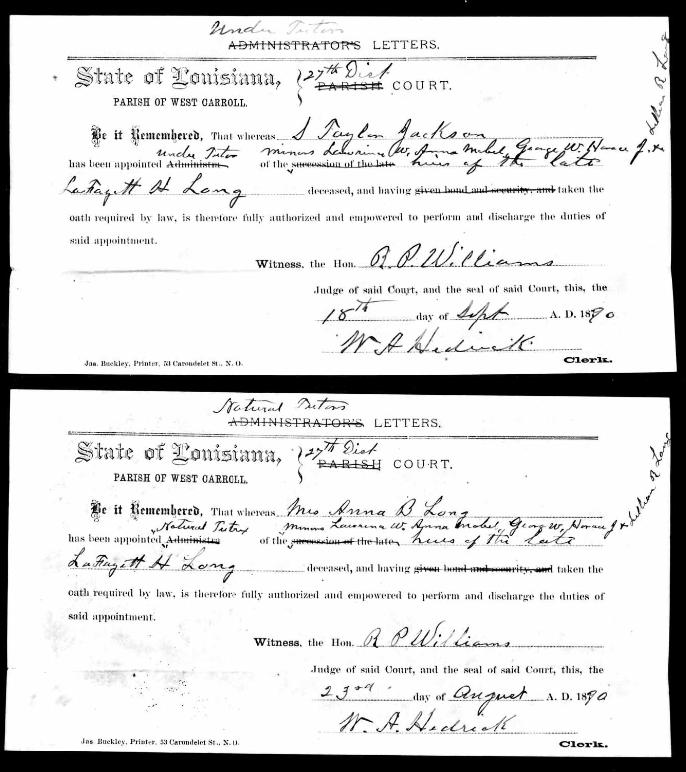 Under Tutors
ADMINISTRATOR'S LETTERS.
State of Louisiana,
PARISH OF WEST CARROLL.
27th Dist
PARISH COURT.
Be it Remembered, That whereas S Taylor Jackson
under Tutor minors Laurina W, Anna Mabel, George W, Horace J, &
Lillian R Long
has been appointed Administ of the succession of the late heirs of the late
LaFayett H Long deceased, and having given bond and security, and taken the
oath required by law, is therefore fully authorized and empowered to perform and discharge the duties of
said appointment.
Witness, the Hon. R. P. Williams
Judge of said Court, and the seal of said Court, this, the
18th day of Sept A. D. 1890
W A Hedrick
Clerk.
Jas. Buckley, Printer, 53 Carondelet St., N. O.
Natural Tutors
ADMINISTRATOR'S LETTERS.
State of Louisiana,
PARISH OF WEST CARROLL.
27th Dist
PARISH COURT.
Be it Remembered, That whereas Mrs Anna B Long
Natural Tutrix minors Laurina W, Anna Mabel, George W, Horace J &
Lillian R Long
has been appointed Administra of the succession of the late heirs of the late
LaFayett H Long deceased, and having given bond and security, and taken the
oath required by law, is therefore fully authorized and empowered to perform and discharge the duties of
said appointment.
Witness, the Hon. R P Williams
Judge of said Court, and the seal of said Court, this, the
23rd day of August A. D. 1890
W. A. Hedrick
Clerk.
Jas Buckley, Printer, 53 Carondelet St., N. O.